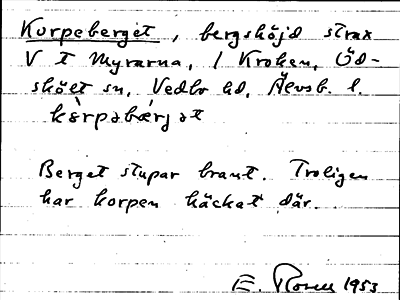 Korpeberget, bergshöjd strax
V t Myrarna, / Kroken, Öd-
skölt sn, Vedbo hd, Älvsb. l.
kòrpəbæ̀rjət
Berget stupar brant. Troligen
har korpen häckat där.
E. Rosell 1953